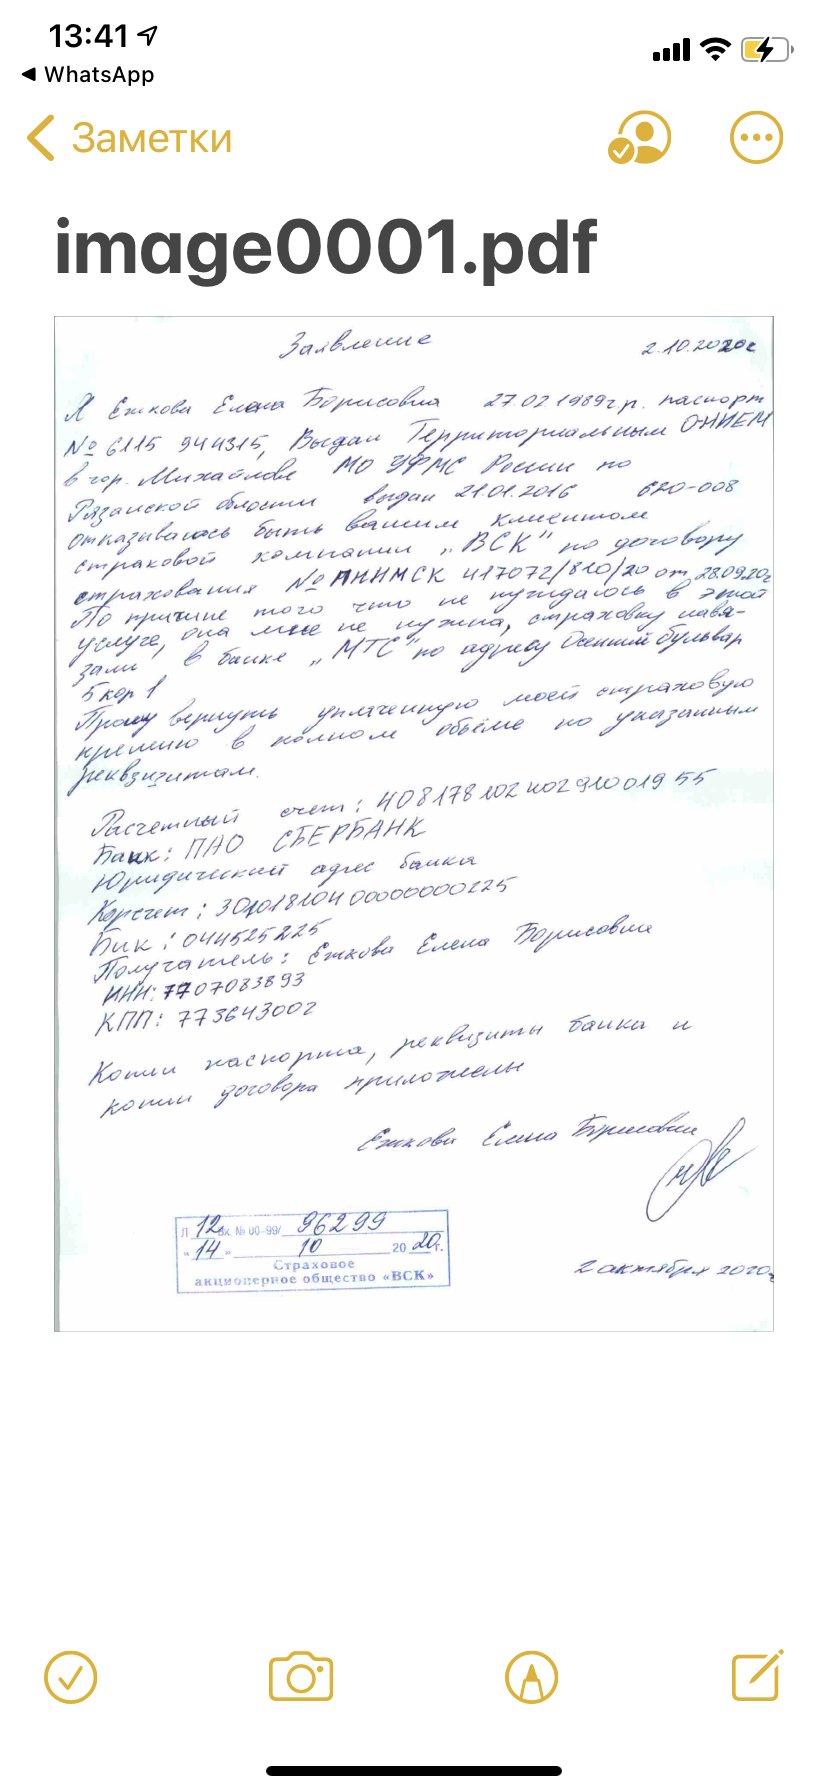 13:41
WhatsApp
Заметки
image0001.pdf
Заявление
2.10.2020г
Я Ежкова Елена Борисовна 27.02 1989г р. паспорт
№ 6115 944315, Выдан Территориальным ОНИЕМ
в гор. Михайлове МО УФМС России по
Рязанской области выдан 21.01.2016 620-008
отказываюсь быть вашим клиентом
страховой компании „ВСК" по договору
страхования № 417072/810/20 от 28.09.20г
По причине того что не нуждаюсь в этой
услуге, она мне не нужна, страховку навя-
зали в банке „МТС" по адресу Осенний бульвар
5 кор 1
Прошу вернуть уплаченную мной страховую
премию в полном объёме по указанным
реквизитам.
Расчетный счет:
Банк: ПАО СБЕРБАНК
Юридический адрес банка
Корсчет: 30101810400000000225
Бик: 044525225
Получатель: Ежкова Елена Борисовна
ИНН: 7707083893
КПП: 773643002
Копии паспорта, реквизиты банка и
копии договора приложены
Ежкова Елена Борисовна
Л 12 Вх. № 00-99/ 96299
« 14 » 10 20 20 г.
Страховое
акционерное общество «ВСК»
2 октября 2020г